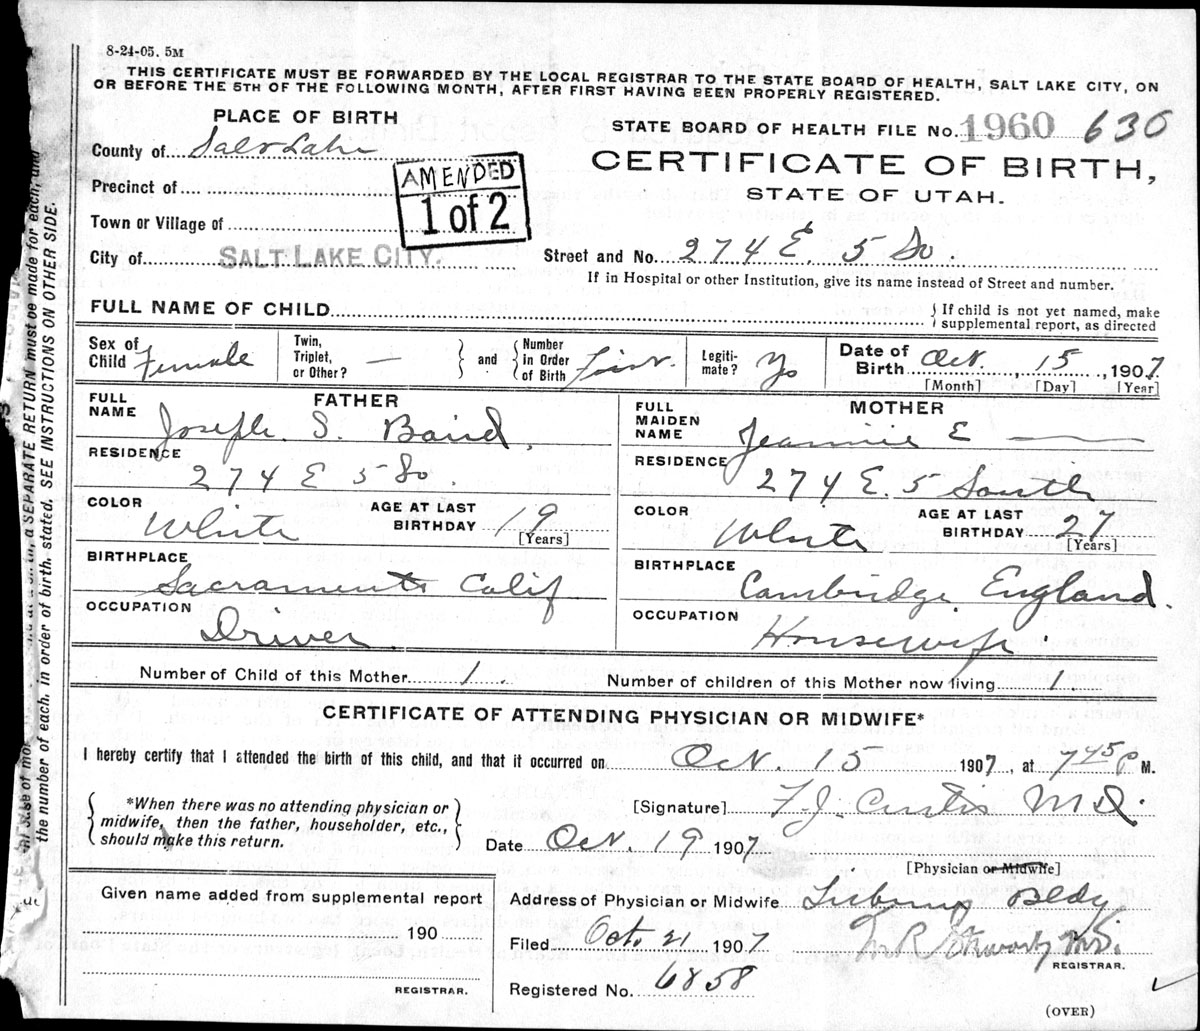 8-24-05. 5M
THIS CERTIFICATE MUST BE FORWARDED BY THE LOCAL REGISTRAR TO THE STATE BOARD OF HEALTH, SALT LAKE CITY, ON
OR BEFORE THE 5TH OF THE FOLLOWING MONTH, AFTER FIRST HAVING BEEN PROPERLY REGISTERED.
PLACE OF BIRTH
STATE BOARD OF HEALTH FILE No. 1960 636
County of Salt Lake
CERTIFICATE OF BIRTH,
STATE OF UTAH.
AMENDED
1 of 2
Precinct of
Town or Village of
City of SALT LAKE CITY.
Street and No. 274 E. 5 So.
If in Hospital or other Institution, give its name instead of Street and number.
FULL NAME OF CHILD
{ If child is not yet named, make
supplemental report, as directed
Sex of Child Female
Twin, Triplet, or Other? —
and
Number in Order of Birth First.
Legiti-mate? Yes
Date of Birth Oct. 15, 1907
[Month] [Day] [Year]
FATHER
FULL NAME Joseph S. Baird,
RESIDENCE
274 E 5 So.
COLOR White
AGE AT LAST BIRTHDAY 19
[Years]
BIRTHPLACE
Sacramento Calif
OCCUPATION
Driver
MOTHER
FULL MAIDEN NAME Jeannie E —
RESIDENCE
274 E. 5 South
COLOR White
AGE AT LAST BIRTHDAY 27
[Years]
BIRTHPLACE
Cambridge, England.
OCCUPATION
Housewife.
Number of Child of this Mother 1.
Number of children of this Mother now living 1.
CERTIFICATE OF ATTENDING PHYSICIAN OR MIDWIFE*
I hereby certify that I attended the birth of this child, and that it occurred on Oct. 15 1907, at 7 45 P M.
{ *When there was no attending physician or
midwife, then the father, householder, etc.,
should make this return. }
[Signature] F. J. Curtis M.D.
Date Oct. 19 1907
[Physician or Midwife]
Given name added from supplemental report
190
REGISTRAR.
Address of Physician or Midwife Bldg
Filed Oct. 21 1907
M.D.
REGISTRAR.
Registered No. 6858
(OVER)
a SEPARATE RETURN must be made for each, and
the number of each, in order of birth, stated. SEE INSTRUCTIONS ON OTHER SIDE.